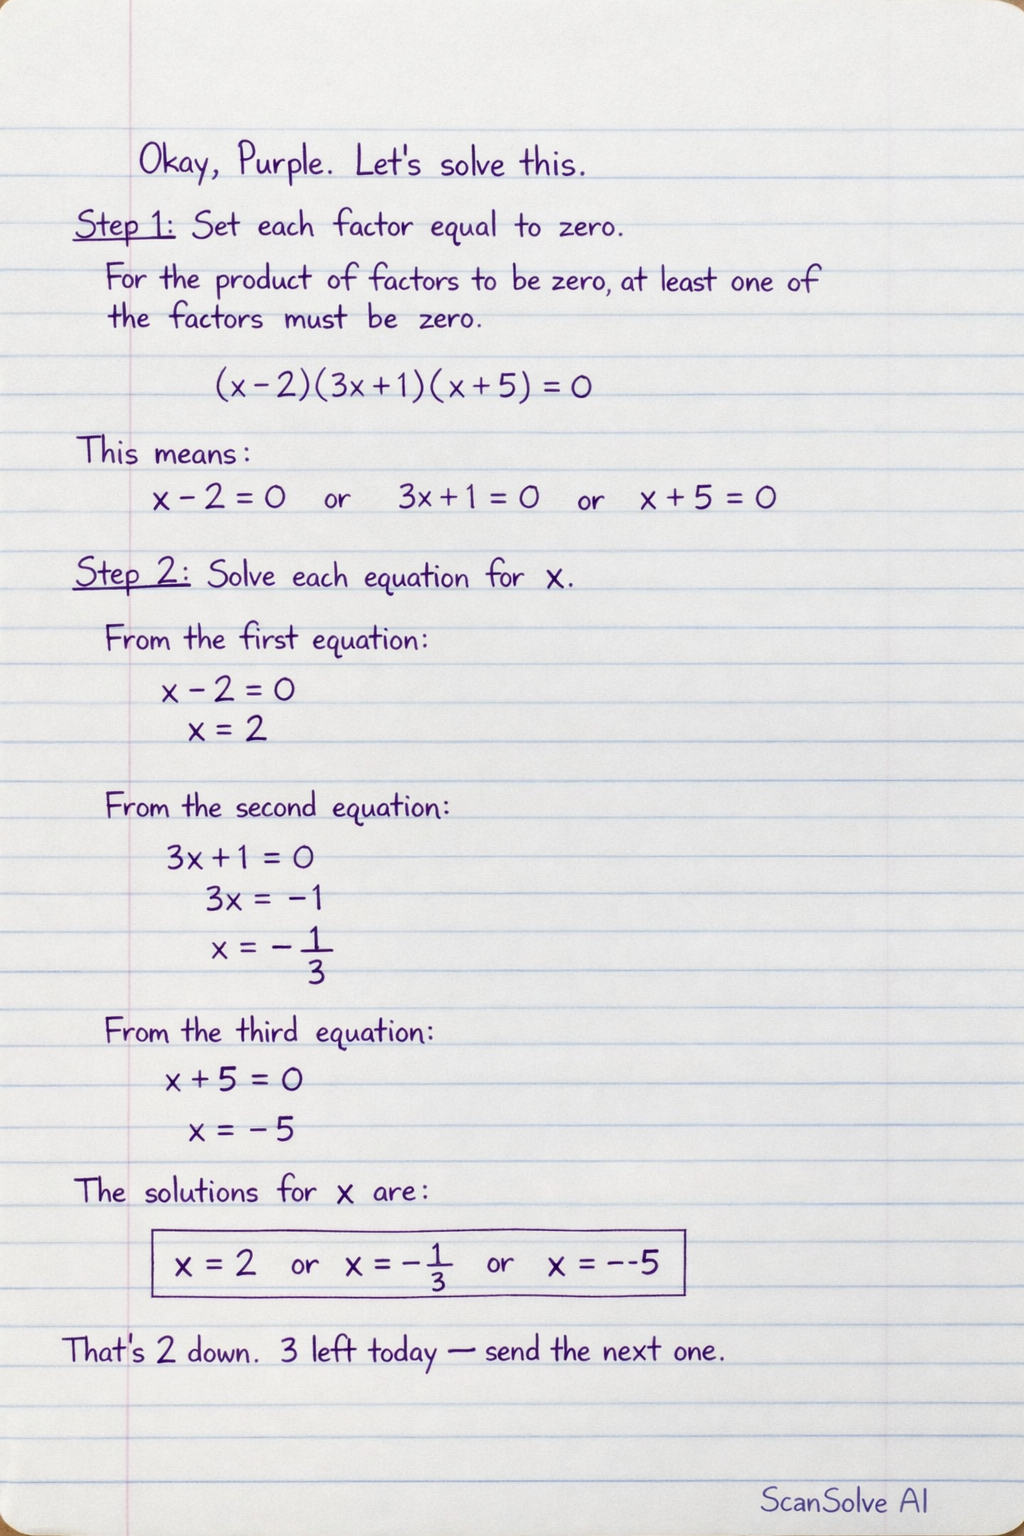 Okay, Purple. Let's solve this.
Step 1: Set each factor equal to zero.
For the product of factors to be zero, at least one of
the factors must be zero.
(x-2)(3x+1)(x+5) = 0
This means:
x - 2 = 0 or 3x + 1 = 0 or x + 5 = 0
Step 2: Solve each equation for x.
From the first equation:
x - 2 = 0
x = 2
From the second equation:
3x + 1 = 0
3x = -1
x = -1/3
From the third equation:
x + 5 = 0
x = -5
The solutions for x are:
x = 2 or x = -1/3 or x = --5
That's 2 down. 3 left today — send the next one.
ScanSolve AI